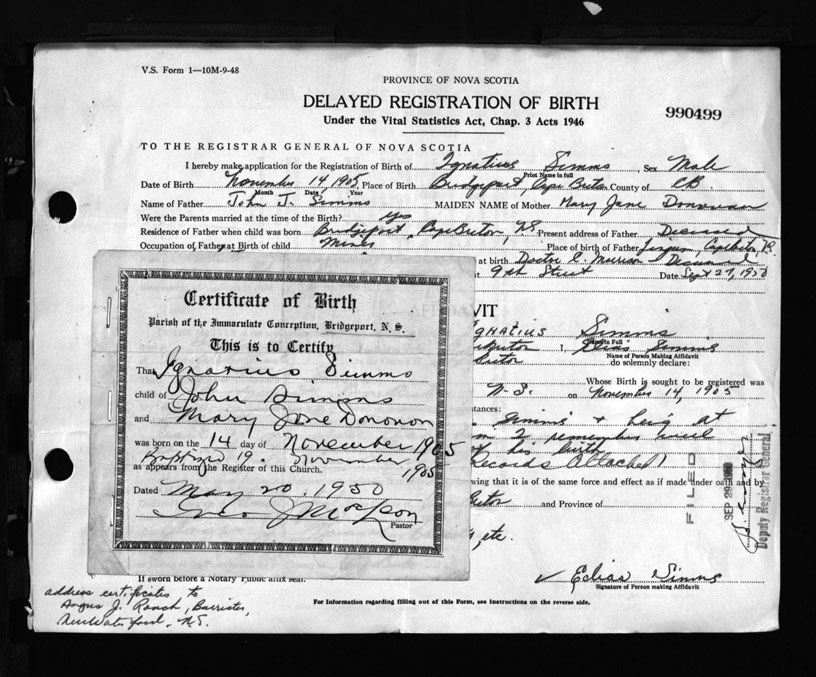 V.S. Form 1—10M-9-48
PROVINCE OF NOVA SCOTIA
DELAYED REGISTRATION OF BIRTH
990499
Under the Vital Statistics Act, Chap. 3 Acts 1946
TO THE REGISTRAR GENERAL OF NOVA SCOTIA
I hereby make application for the Registration of Birth of Ignatius Simms, Sex Male
Print Name in full
Date of Birth November 14, 1905, Place of Birth Bridgeport, Cape Breton County of C.B.
Month Date Year
Name of Father John J. Simms MAIDEN NAME of Mother Mary Jane Donovan
Were the Parents married at the time of the Birth? yes
Residence of Father when child was born Bridgeport, Cape Breton, N.S. Present address of Father Deceased
Occupation of Father at Birth of child Miner Place of birth of Father
at birth Doctor Deceased
9th Street Date Sept 27, 1950
VIT
Ignatius Simms
I, Elias Simms
Name of Person Making Affidavit
do solemnly declare:
Whose Birth is sought to be registered was
N.S. on November 14, 1905
tances:
Simms & being at
I remember well
his birth
Records Attached)
ing that it is of the same force and effect as if made under oath and by
and Province of
etc.
FILED
SEP 29
Deputy Registrar General
Elias Simms
Signature of Person making Affidavit
If sworn before a Notary Public affix seal.
For Information regarding filling out of this Form, see Instructions on the reverse side.
address certificates to
Angus J. Barrister,
New Waterford, N.S.
Certificate of Birth
Parish of the Immaculate Conception, Bridgeport, N. S.
This is to Certify
That Ignatius Simms
child of John Simms
and Mary Jane Donovon
was born on the 14 day of November 1905
Baptized 19 November 1905
as appears from the Register of this Church.
Dated May 20, 1950
Pastor